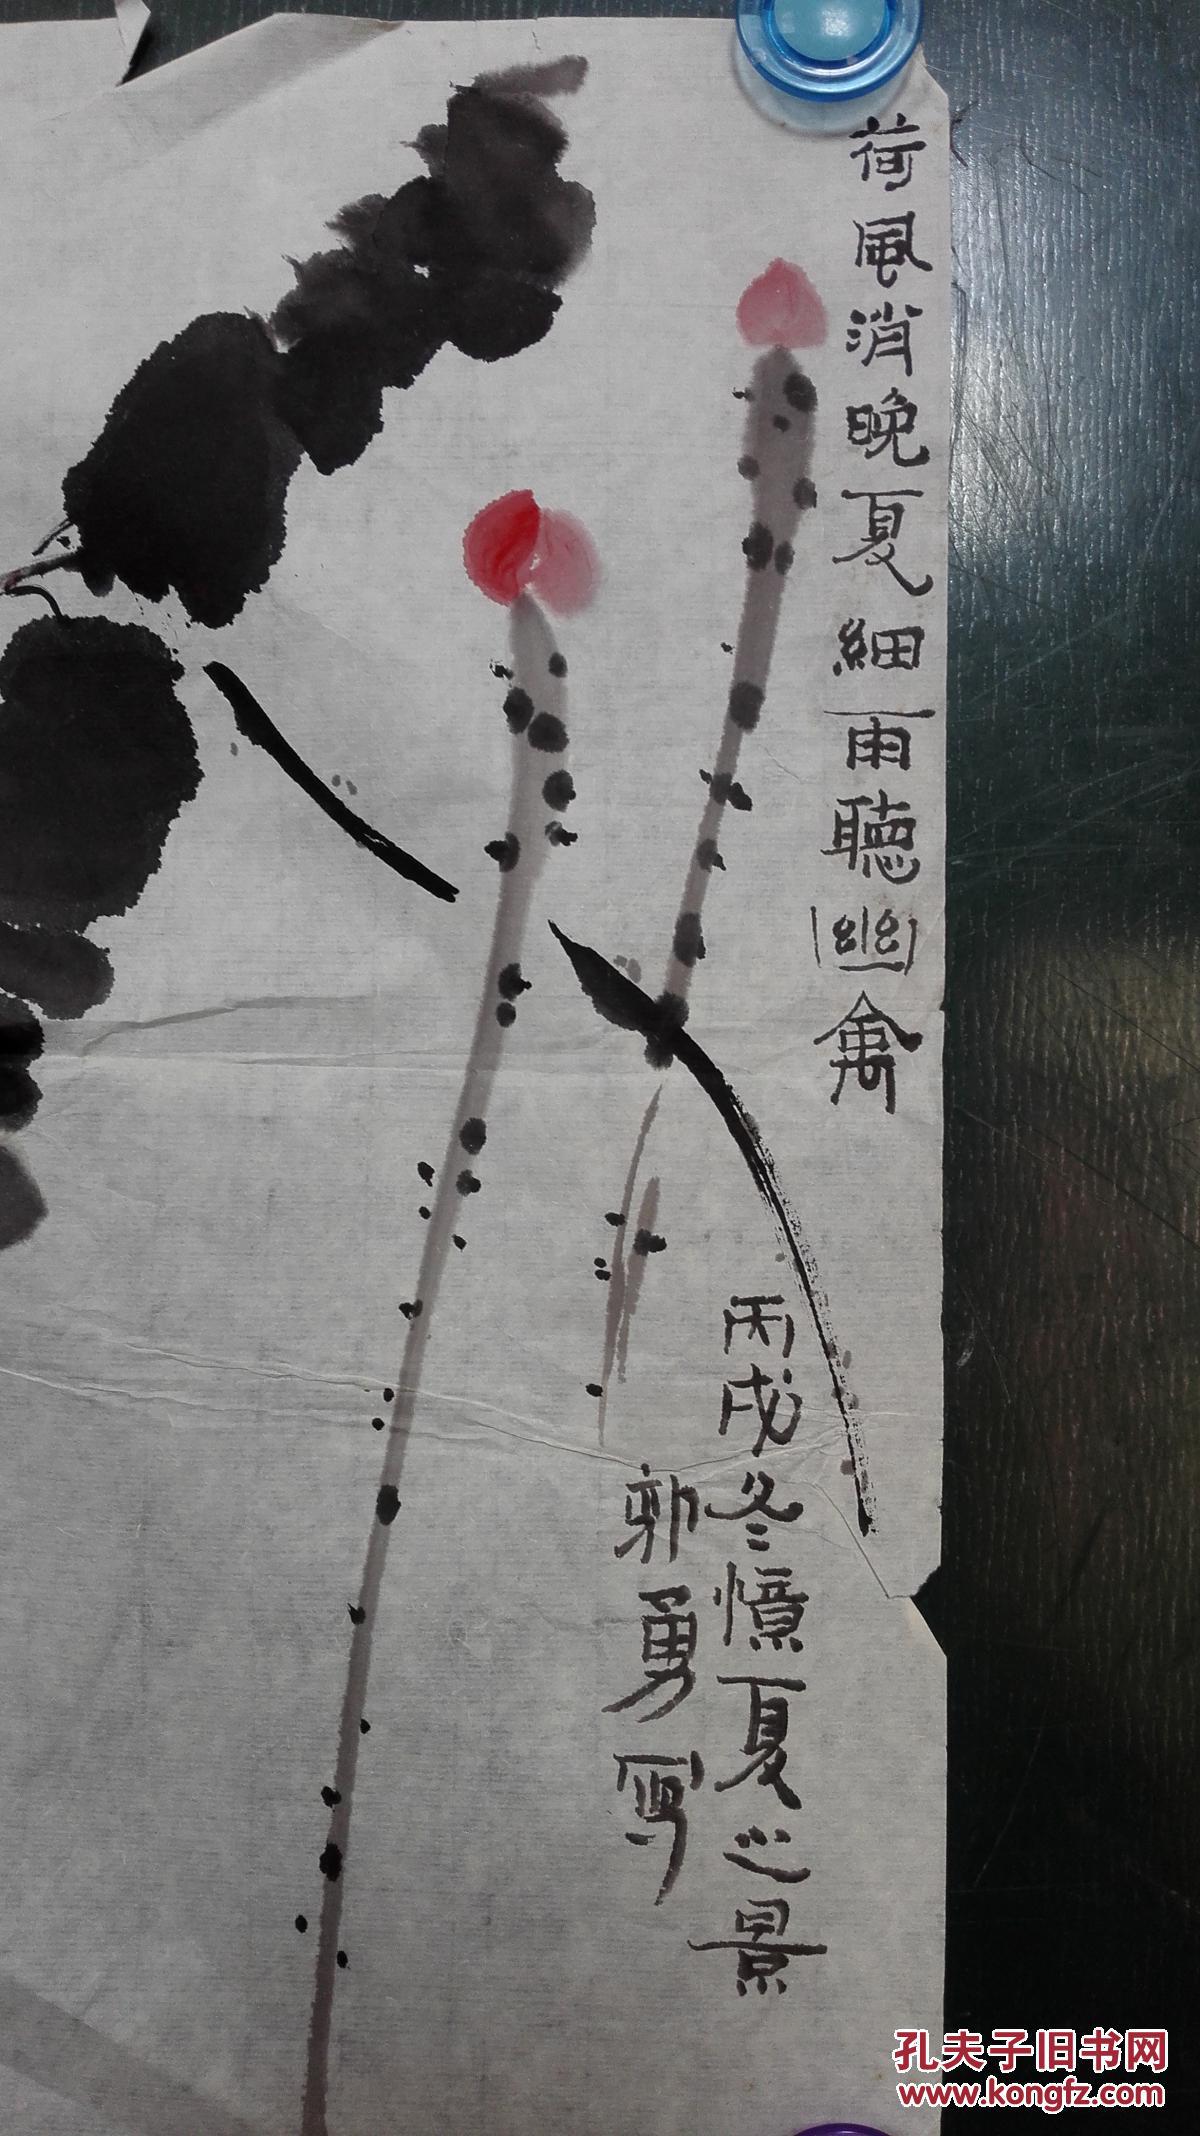 荷風消晚夏細雨聽幽禽
丙戌冬憶夏之景
郭勇寫
孔夫子旧书网
www.kongfz.com